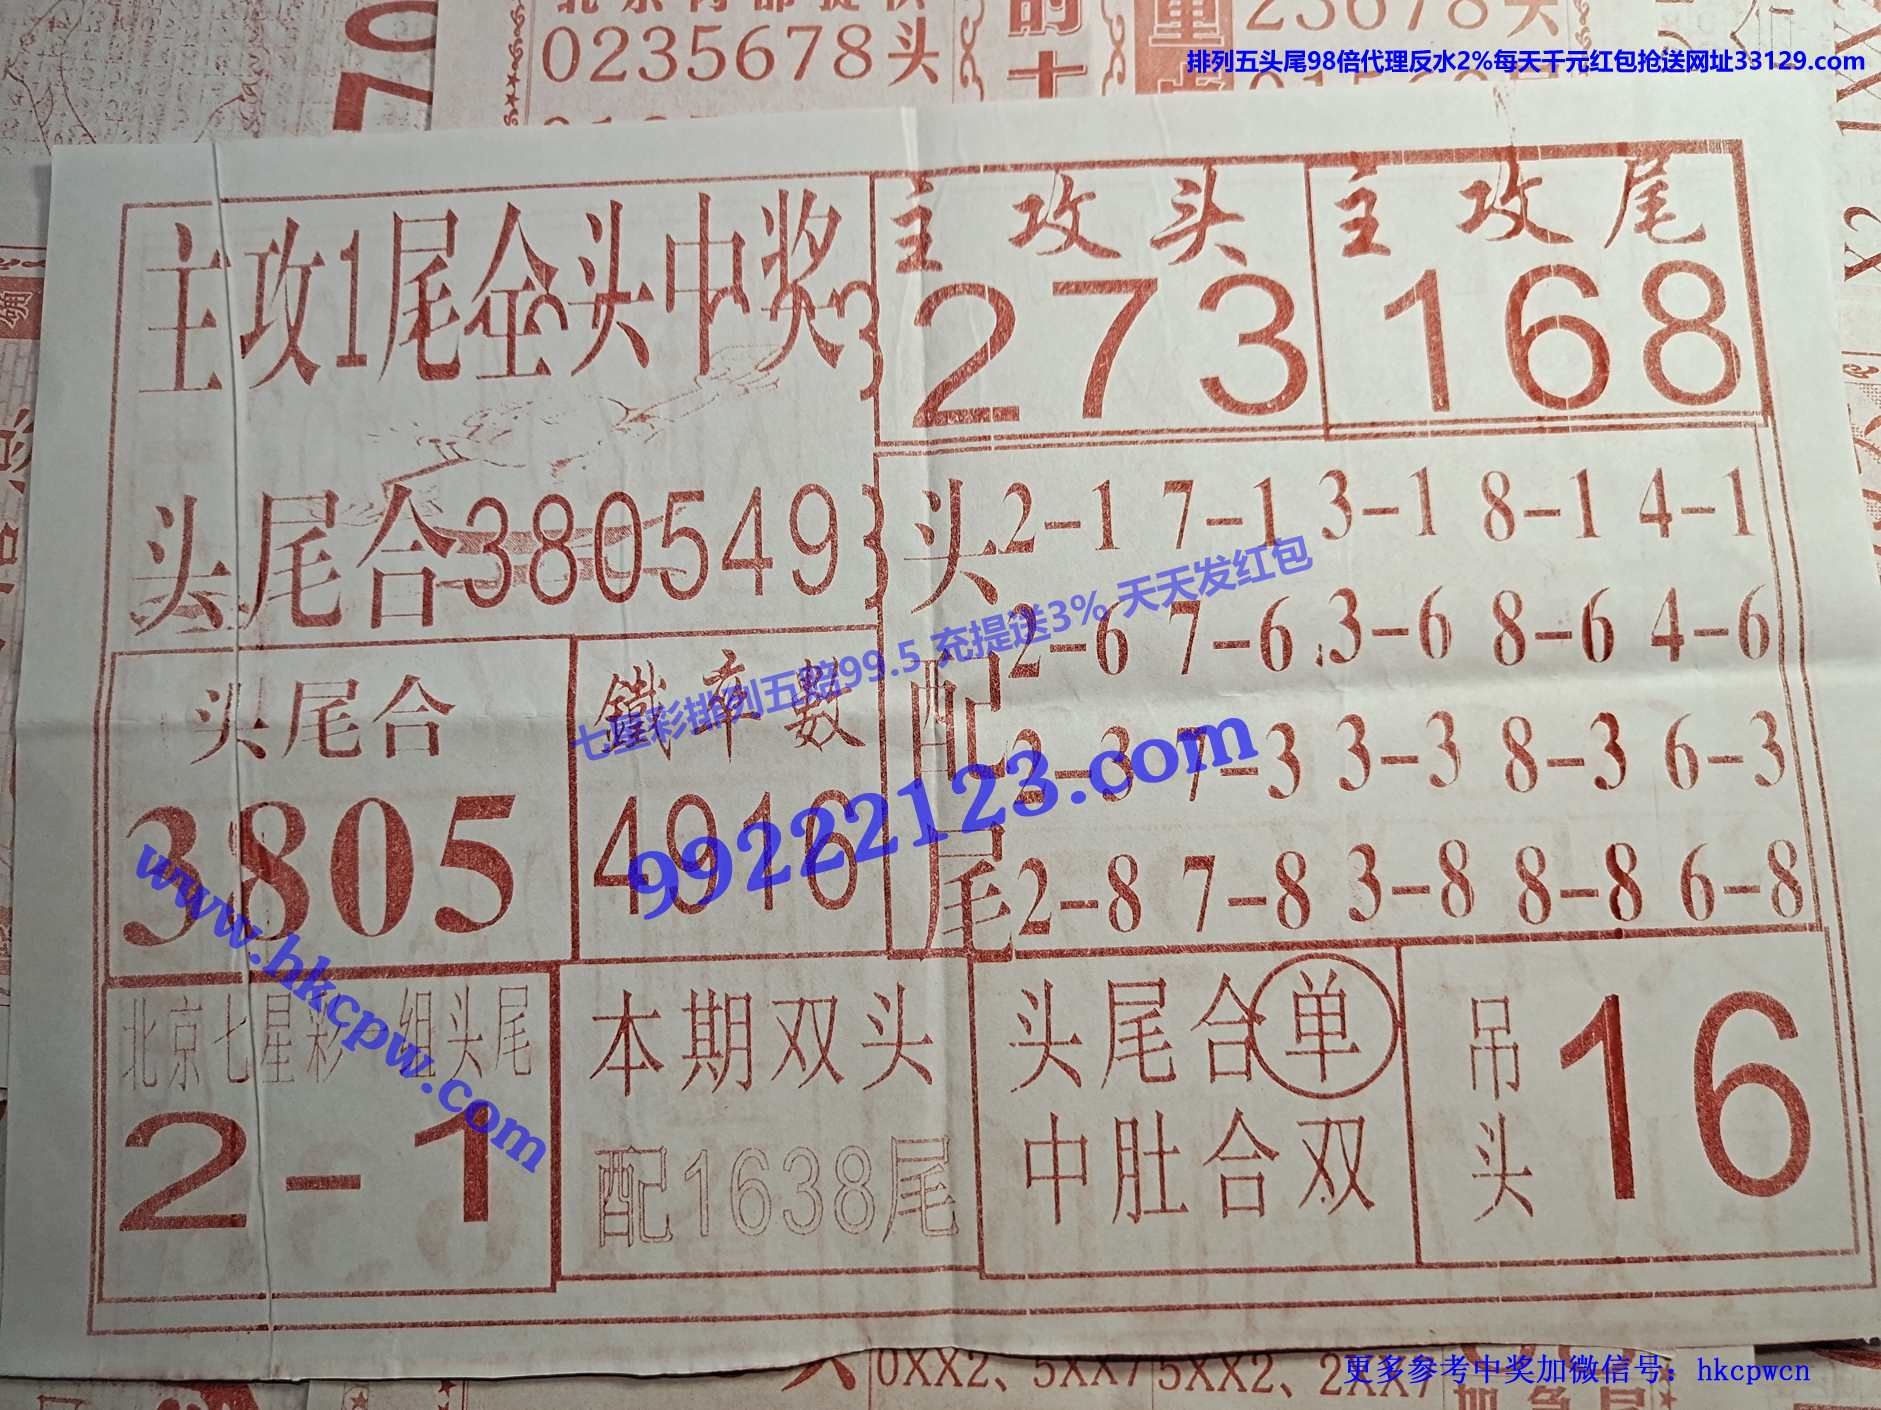 北京内部提供
0235678头
的
重
23678头
排列五头尾98倍代理反水2%每天千元红包抢送网址33129.com
主攻1尾全头中奖
主攻头
273
主攻尾
168
头尾合380549
头配尾
2-1 7-1 3-1 8-1 4-1
2-6 7-6 3-6 8-6 4-6
2-3 7-3 3-3 8-3 6-3
2-8 7-8 3-8 8-8 6-8
七星彩排列五赔99.5 充提送3% 天天发红包
99222123.com
头尾合
3805
鐵率數
4916
www.hkcpw.com
北京七星彩一组头尾
2-1
本期双头
配1638尾
头尾合单
中肚合双
吊头
16
0XX2、5XX7 5XX2、2XX7
更多参考中奖加微信号：hkcpwcn